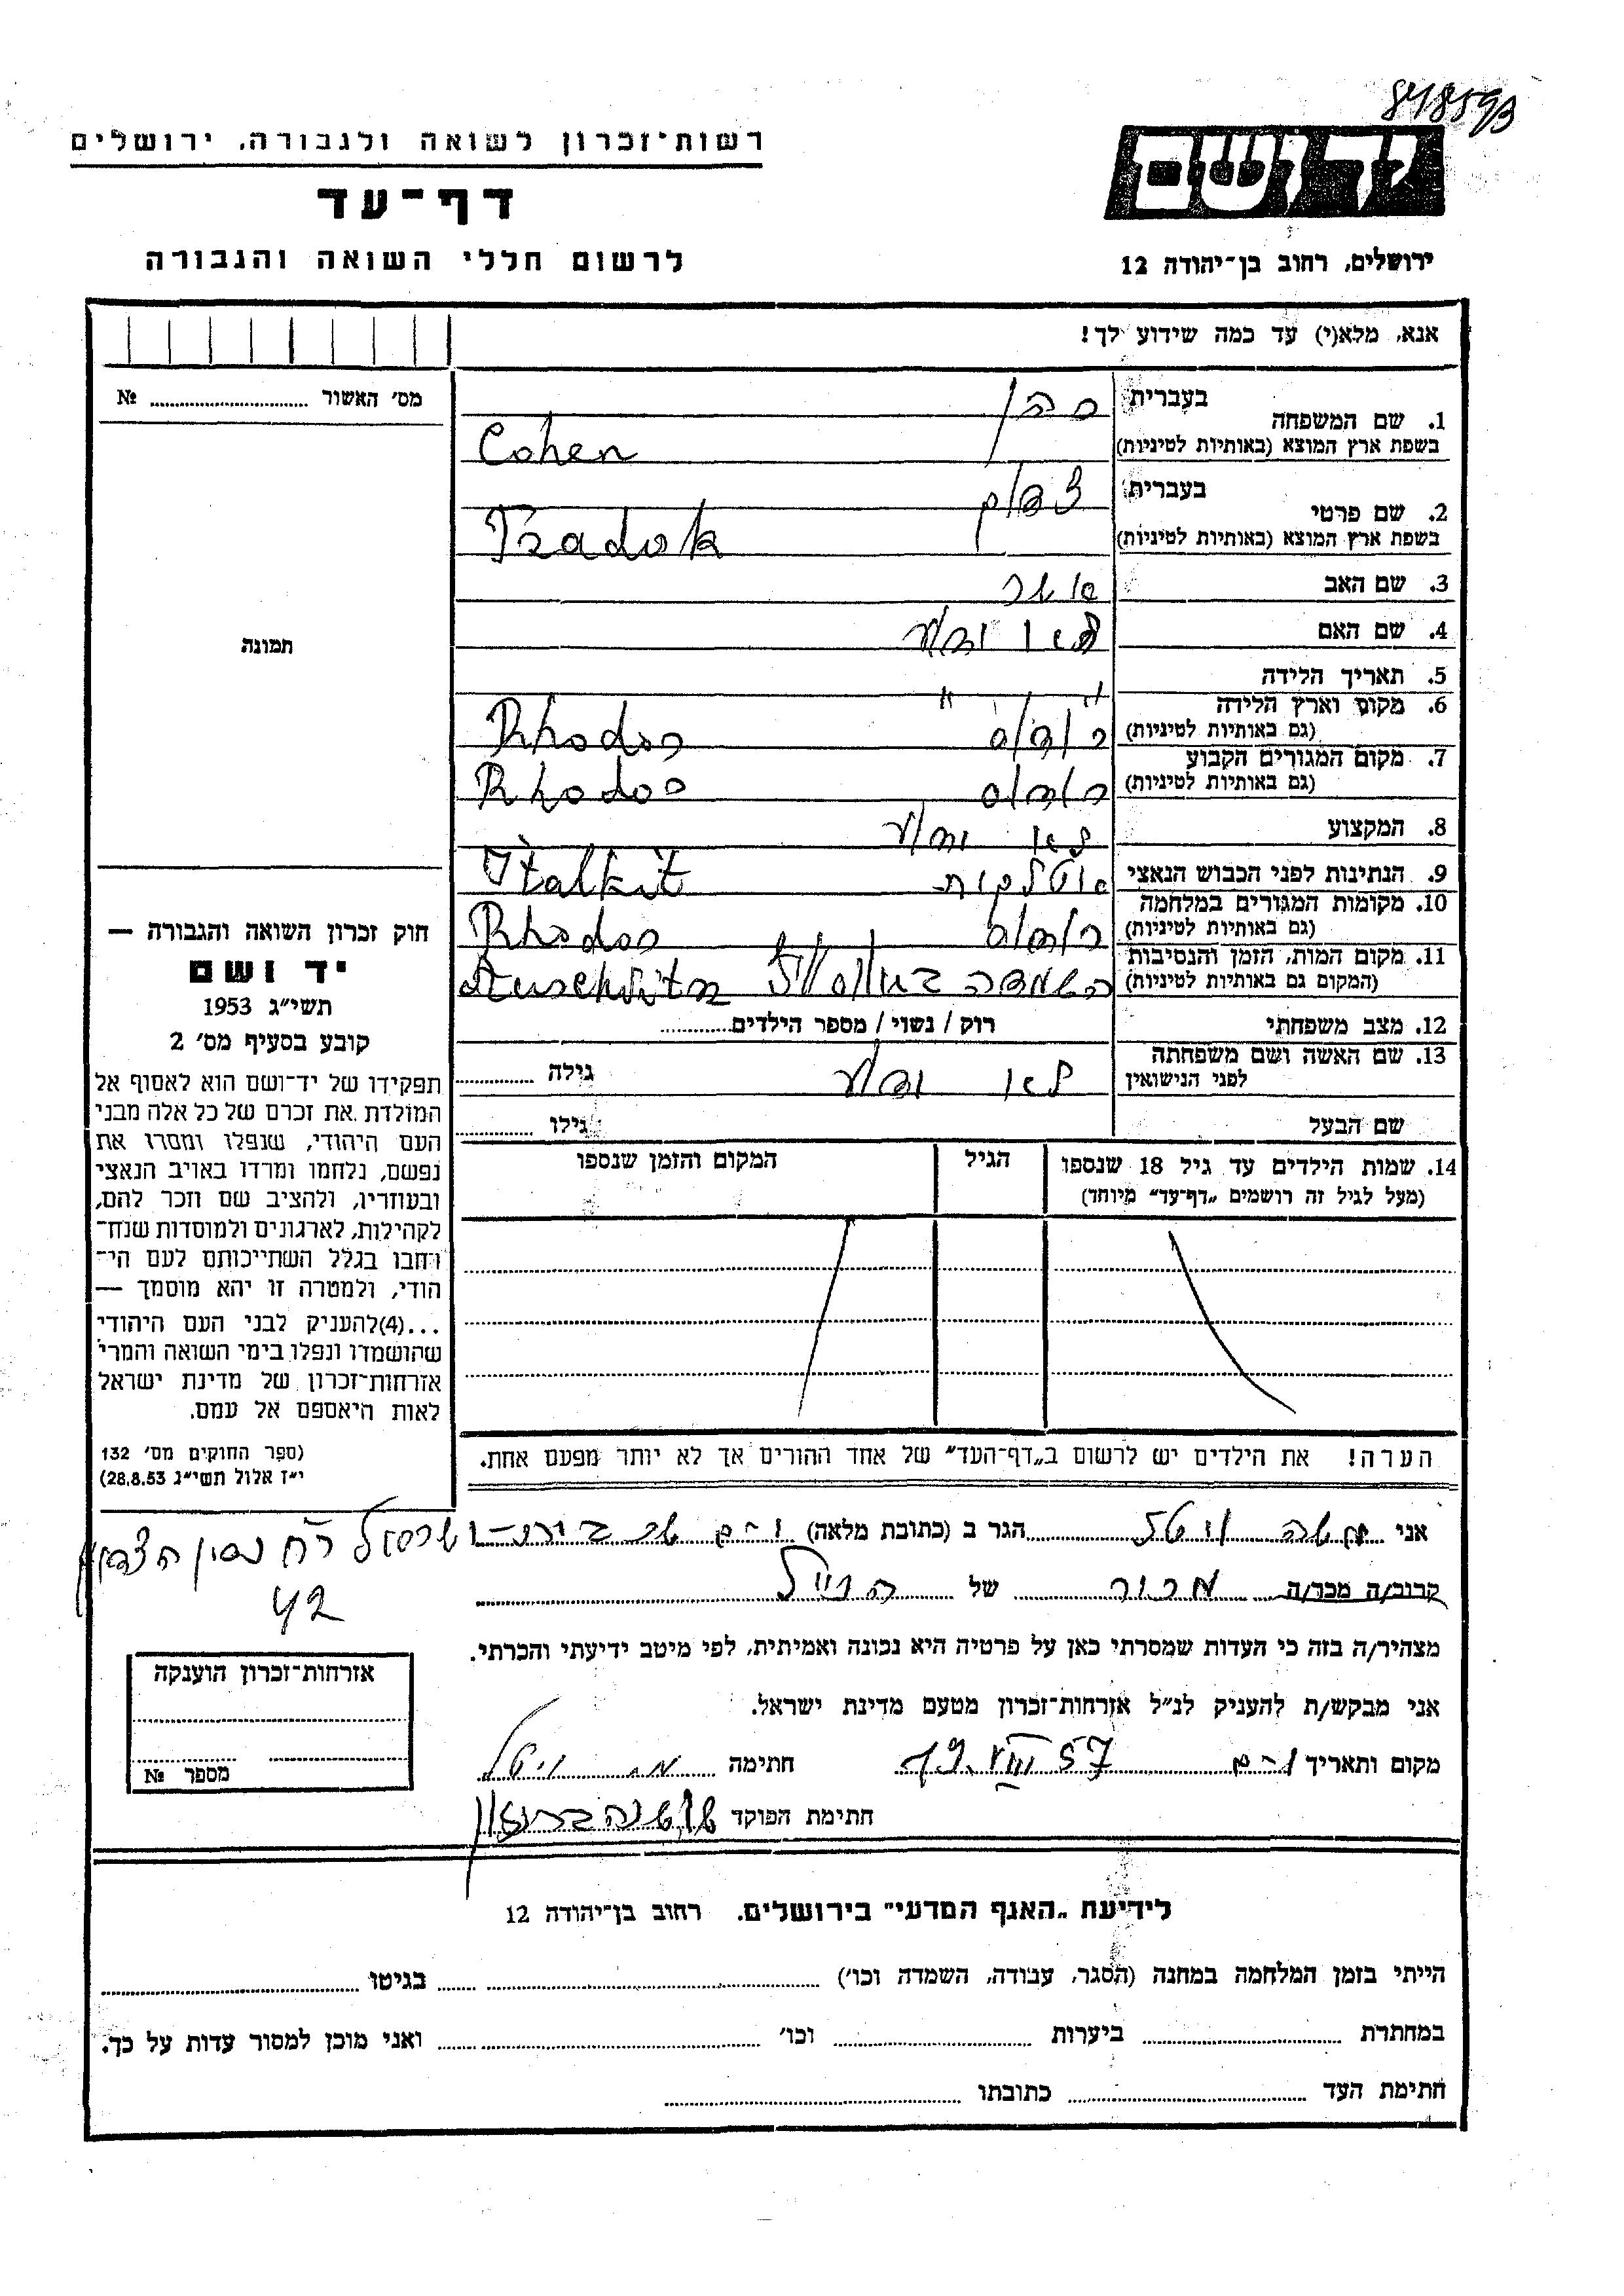 848593
רשות־זכרון לשואה ולגבורה, ירושלים
דף־עד
לרשום חללי השואה והגבורה
יד ושם
ירושלים, רחוב בן־יהודה 12
אנא, מלא(י) עד כמה שידוע לך!
מס׳ האשור ........ №
תמונה
1. שם המשפחה בעברית כהן
בשפת ארץ המוצא (באותיות לטיניות) Cohen
2. שם פרטי בעברית צדוק
בשפת ארץ המוצא (באותיות לטיניות) Tzadok
3. שם האב
4. שם האם לא ידוע
5. תאריך הלידה " "
6. מקום וארץ הלידה (גם באותיות לטיניות) רודוס Rhodos
7. מקום המגורים הקבוע (גם באותיות לטיניות) רודוס Rhodos
8. המקצוע לא ידוע
9. הנתינות לפני הכבוש הנאצי איטלקית Italkit
10. מקומות המגורים במלחמה (גם באותיות לטיניות) רודוס Rhodos
11. מקום המות, הזמן והנסיבות (המקום גם באותיות לטיניות) השמדה Auschwitz
12. מצב משפחתי רוק / נשוי / מספר הילדים........
13. שם האשה ושם משפחתה לפני הנישואין לא ידוע גילה ........
שם הבעל גילו ........
14. שמות הילדים עד גיל 18 שנספו הגיל המקום והזמן שנספו
(מעל לגיל זה רושמים „דף־עד״ מיוחד)
הערה! את הילדים יש לרשום ב„דף־העד״ של אחד ההורים אך לא יותר מפעם אחת.
חוק זכרון השואה והגבורה —
יד ושם
תשי״ג 1953
קובע בסעיף מס׳ 2
תפקידו של יד־ושם הוא לאסוף אל
המולדת את זכרם של כל אלה מבני
העם היהודי, שנפלו ומסרו את
נפשם, נלחמו ומרדו באויב הנאצי
ובעוזריו, ולהציב שם וזכר להם,
לקהילות, לארגונים ולמוסדות שנח־
רחבו בגלל השתייכותם לעם הי־
הודי, ולמטרה זו יהא מוסמך —
...(4)להעניק לבני העם היהודי
שהושמדו ונפלו בימי השואה והמרי
אזרחות־זכרון של מדינת ישראל
לאות היאספם אל עמם.
(ספר החוקים מס׳ 132
י״ז אלול תשי״ג 28.8.53)
אני משה ויטל הגר ב (כתובת מלאה) י-ם
42
קרוב/ה מכר/ה מכור של הנ״ל
מצהיר/ה בזה כי העדות שמסרתי כאן על פרטיה היא נכונה ואמיתית, לפי מיטב ידיעתי והכרתי.
אני מבקש/ת להעניק לנ״ל אזרחות־זכרון מטעם מדינת ישראל.
מקום ותאריך י-ם VIII 57 חתימה מ. ויטל
חתימת הפוקד
אזרחות־זכרון הוענקה
מספר №
לידיעת „האגף המדעי״ בירושלים, רחוב בן־יהודה 12
הייתי בזמן המלחמה במחנה (הסגר, עבודה, השמדה וכו׳) ........ בגיטו ........
במחתרת ........ ביערות ........ וכו׳ ........ ואני מוכן למסור עדות על כך.
חתימת העד ........ כתובתו ........